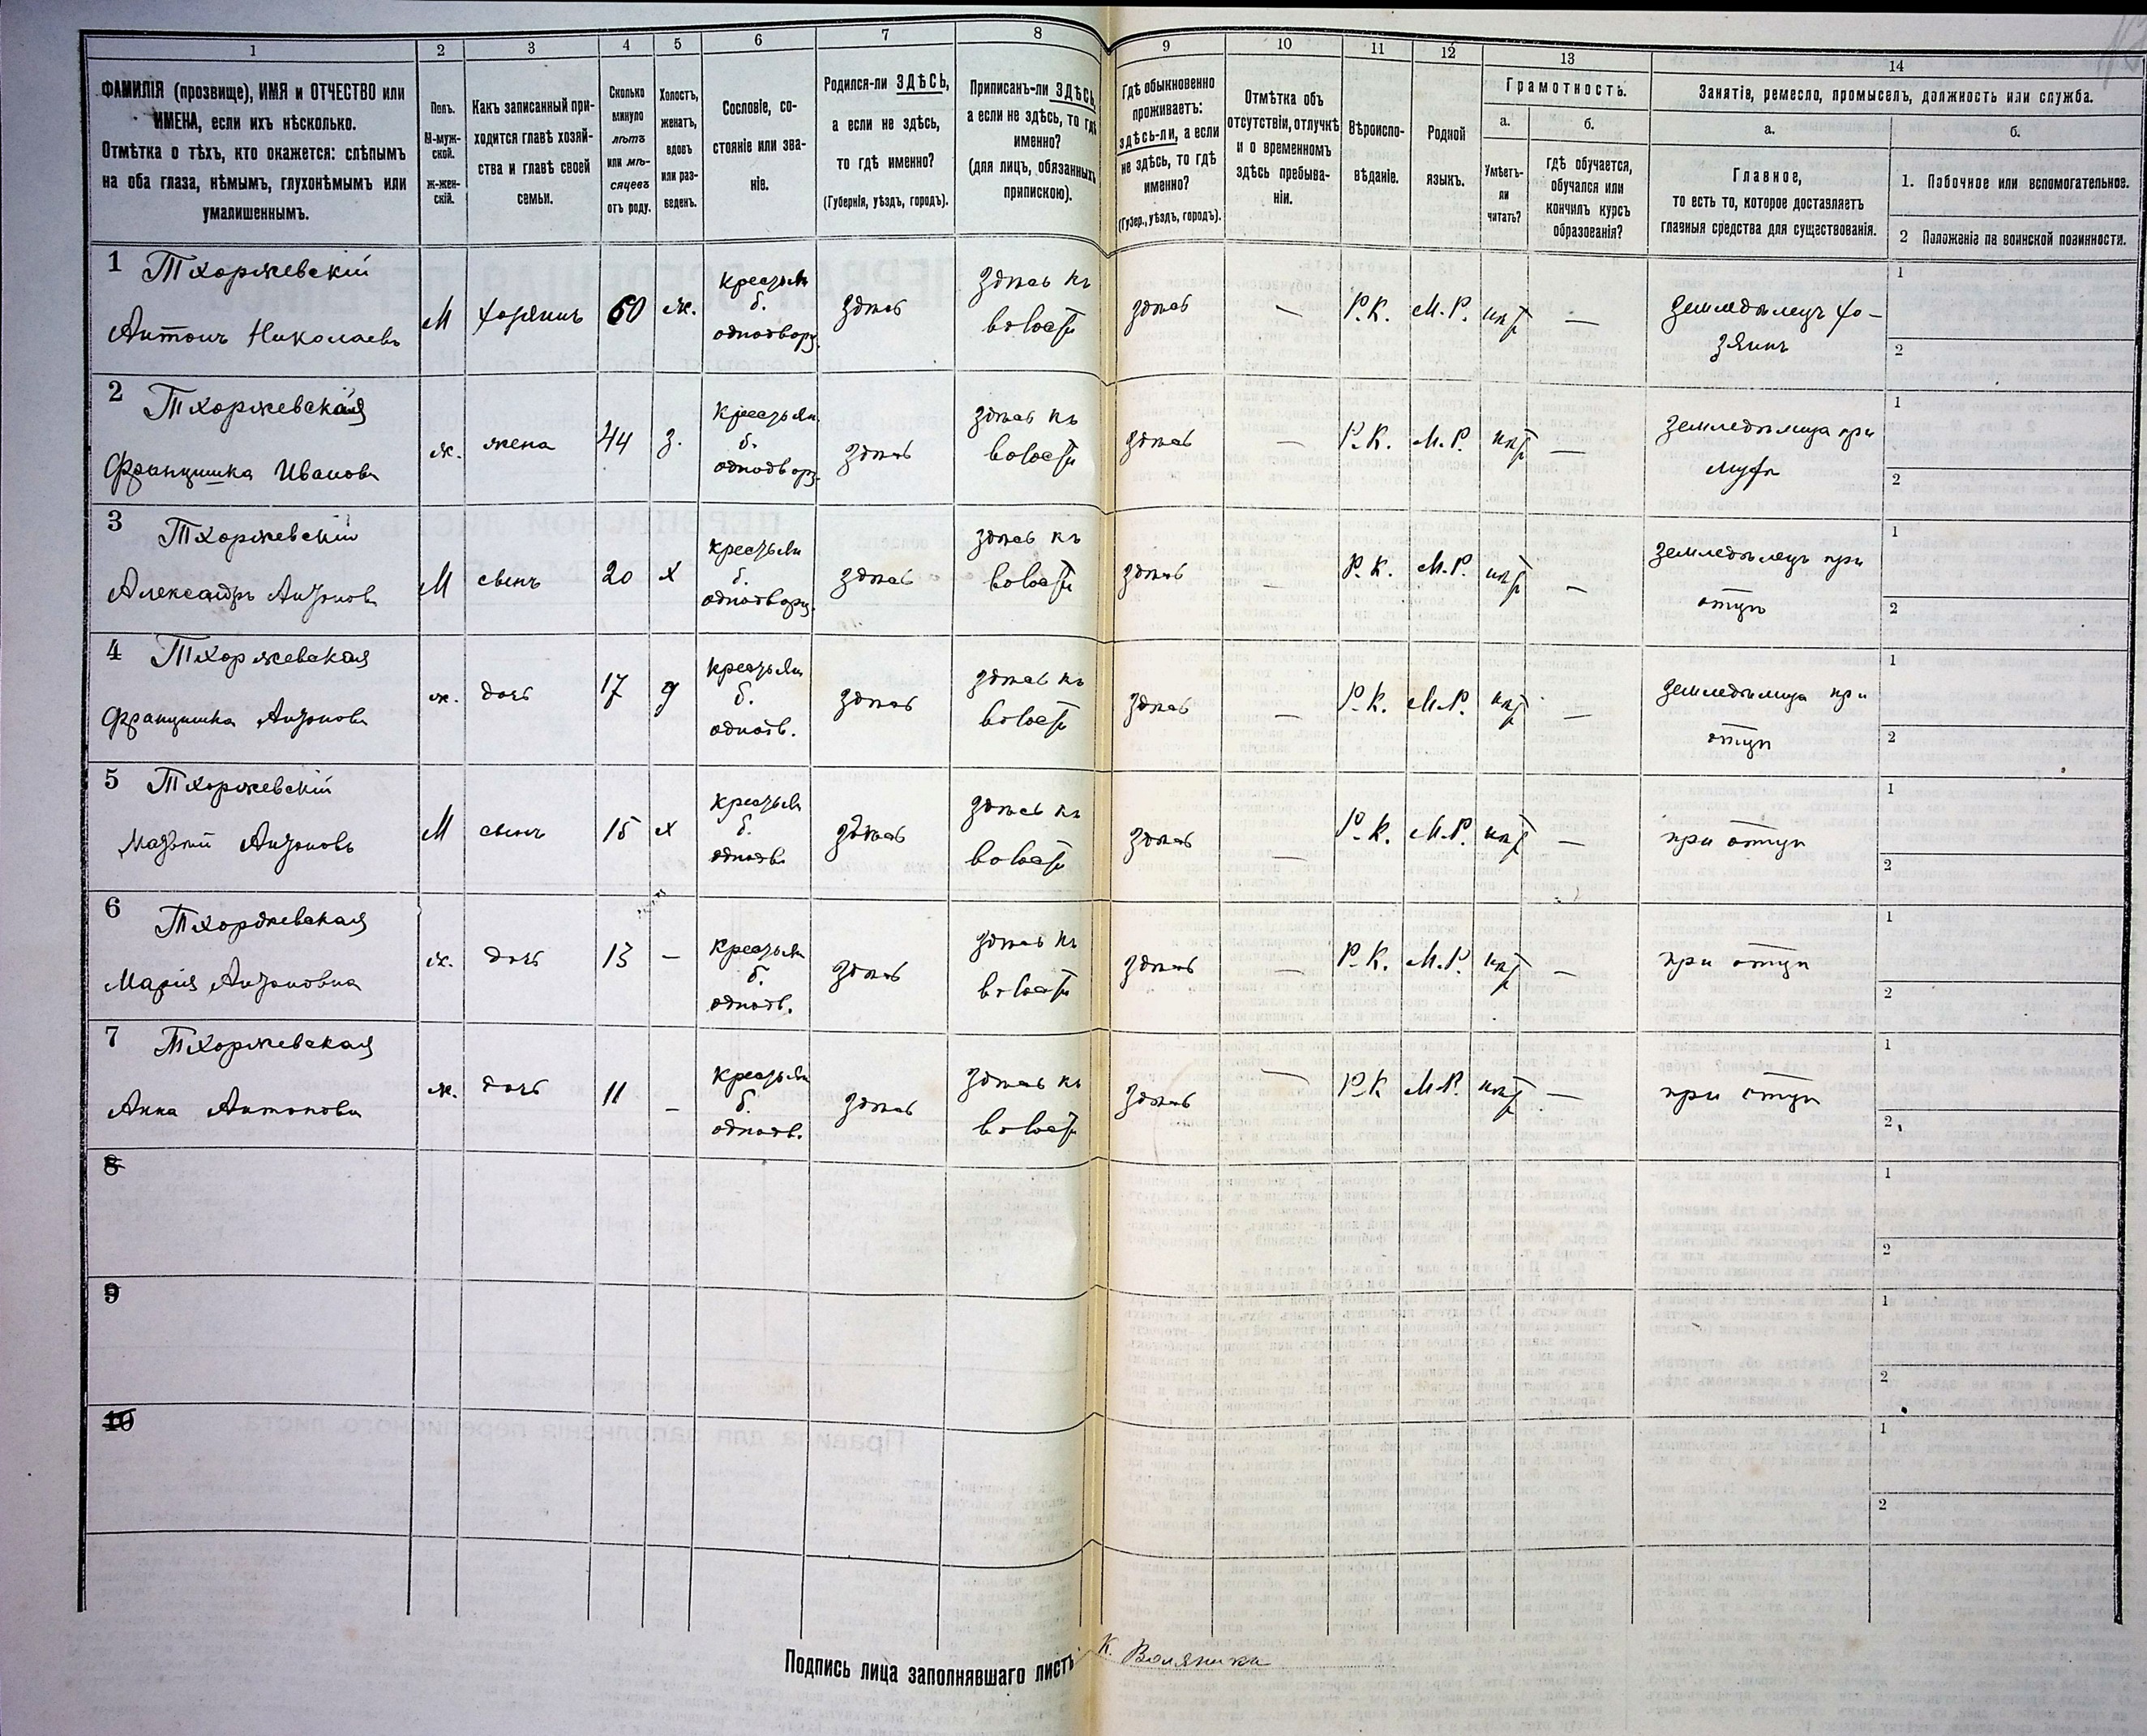 1 2 3 4 5 6 7 8 9 10 11 12 13 14
ФАМИЛІЯ (прозвище), ИМЯ и ОТЧЕСТВО или
ИМЕНА, если ихъ нѣсколько.
Отмѣтка о тѣхъ, кто окажется: слѣпымъ
на оба глаза, нѣмымъ, глухонѣмымъ или
умалишеннымъ.
Полъ.
М-муж-
ской.
Ж-жен-
скій.
Какъ записанный при-
ходится главѣ хозяй-
ства и главѣ своей
семьи.
Сколько
минуло
лѣтъ
или мѣ-
сяцевъ
отъ роду.
Холостъ,
женатъ,
вдовъ
или раз-
веденъ.
Сословіе, со-
стояніе или зва-
ніе.
Родился-ли ЗДѢСЬ,
а если не здѣсь,
то гдѣ именно?
(Губернія, уѣздъ, городъ).
Приписанъ-ли ЗДѢСЬ,
а если не здѣсь, то гдѣ
именно?
(для лицъ, обязанныхъ
припискою).
Гдѣ обыкновенно
проживаетъ:
здѣсь-ли, а если
не здѣсь, то гдѣ
именно?
(Губер., уѣздъ, городъ).
Отмѣтка объ
отсутствіи, отлучкѣ
и о временномъ
здѣсь пребыва-
ніи.
Вѣроиспо-
вѣданіе.
Родной
языкъ.
Грамотность.
а.
Умѣетъ-
ли
читать?
б.
гдѣ обучается,
обучался или
кончилъ курсъ
образованія?
Занятіе, ремесло, промыселъ, должность или служба.
а.
Главное,
то есть то, которое доставляетъ
главныя средства для существованія.
б.
1. Побочное или вспомогательное.
2 Положеніе по воинской повинности.
1 Тхоржевскій
Антонъ Николаевъ
М хозяинъ 60 ж. крестьян б. одноДворц. здѣсь здѣсь къ волости здѣсь — Р.К. М.Р. нѣт — земледѣлецъ хо-
зяинъ
1
2
2 Тхоржевская
Францишка Иванова
ж. жена 44 з. крестьян. б. однодворц. здѣсь здѣсь къ волости здѣсь — Р.К. М.Р. нѣт — земледѣлица при
мужѣ
1
2
3 Тхоржевскій
Александръ Антонов
М сынъ 20 х крестьян б. однодворц. здѣсь здѣсь къ волости здѣсь — Р.К. М.Р. нѣт — земледѣлецъ при
отцѣ
1
2
4 Тхоржевская
Францишка Антонова
ж. дочь 17 д крестьян б. однодв. здѣсь здѣсь къ волости здѣсь — Р.К. М.Р. нѣт — земледѣлица при
отцѣ
1
2
5 Тхоржевскій
Антоновъ
М сынъ 15 х крестьян б. однодв. здѣсь здѣсь къ волости здѣсь — Р.К. М.Р. нѣт — при отцѣ
1
2
6 Тхоржевская
Марія Антоновна
ж. дочь 13 — крестьян б. однодв. здѣсь здѣсь къ волости здѣсь — Р.К. М.Р. нѣт — при отцѣ
1
2
7 Тхоржевская
Анна Антонова
ж. дочь 11 — крестьян б. однодв. здѣсь здѣсь къ волости здѣсь — Р.К М.Р. нѣт — при отцѣ
1
2
8
1
2
9
1
2
10
1
2
Подпись лица заполнявшаго листъ К.